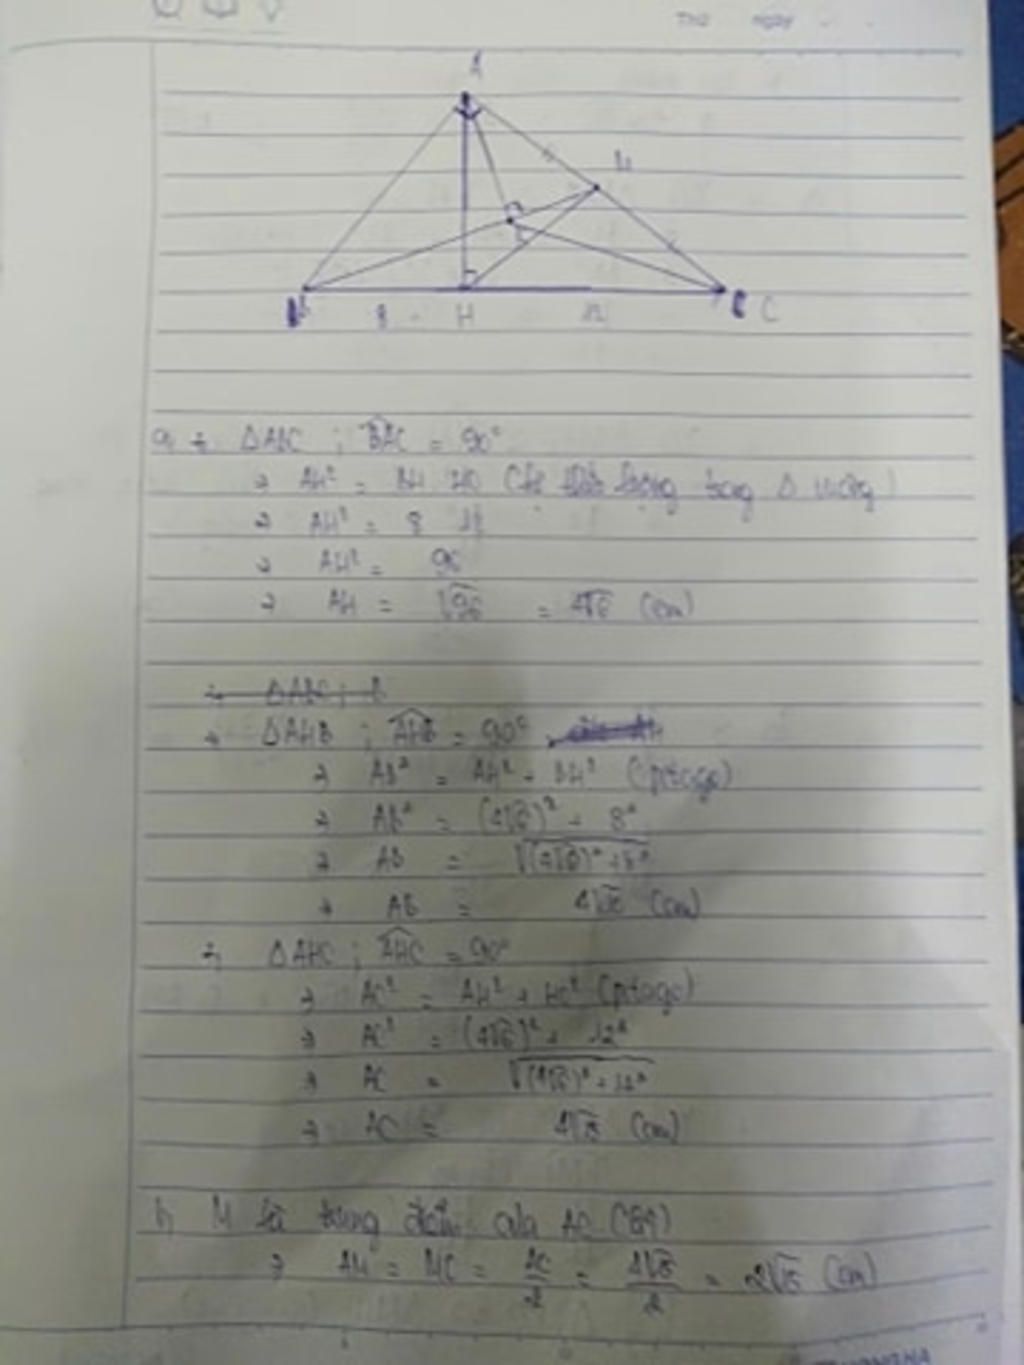 A
M
8 H 12 C
a, + ΔABC ; BAC = 90°
⇒ AH² = BH . HC (hệ thức lượng trong Δ vuông)
⇒ AH² = 8 . 12
⇒ AH² = 96
⇒ AH = √96 = 4√6 (cm)
+ ΔAHB ; AHB = 90°
⇒ AB² = AH² + BH² (pitago)
⇒ AB² = (4√6)² + 8²
⇒ AB = √(4√6)² + 8²
⇒ AB = (cm)
+ ΔAHC ; AHC = 90°
⇒ AC² = AH² + HC² (pitago)
⇒ AC² = (4√6)² + 12²
⇒ AC = √(4√6)² + 12²
⇒ AC = (cm)
b, M là trung điểm của AC (gt)
⇒ AM = MC = AC/2 = = (cm)